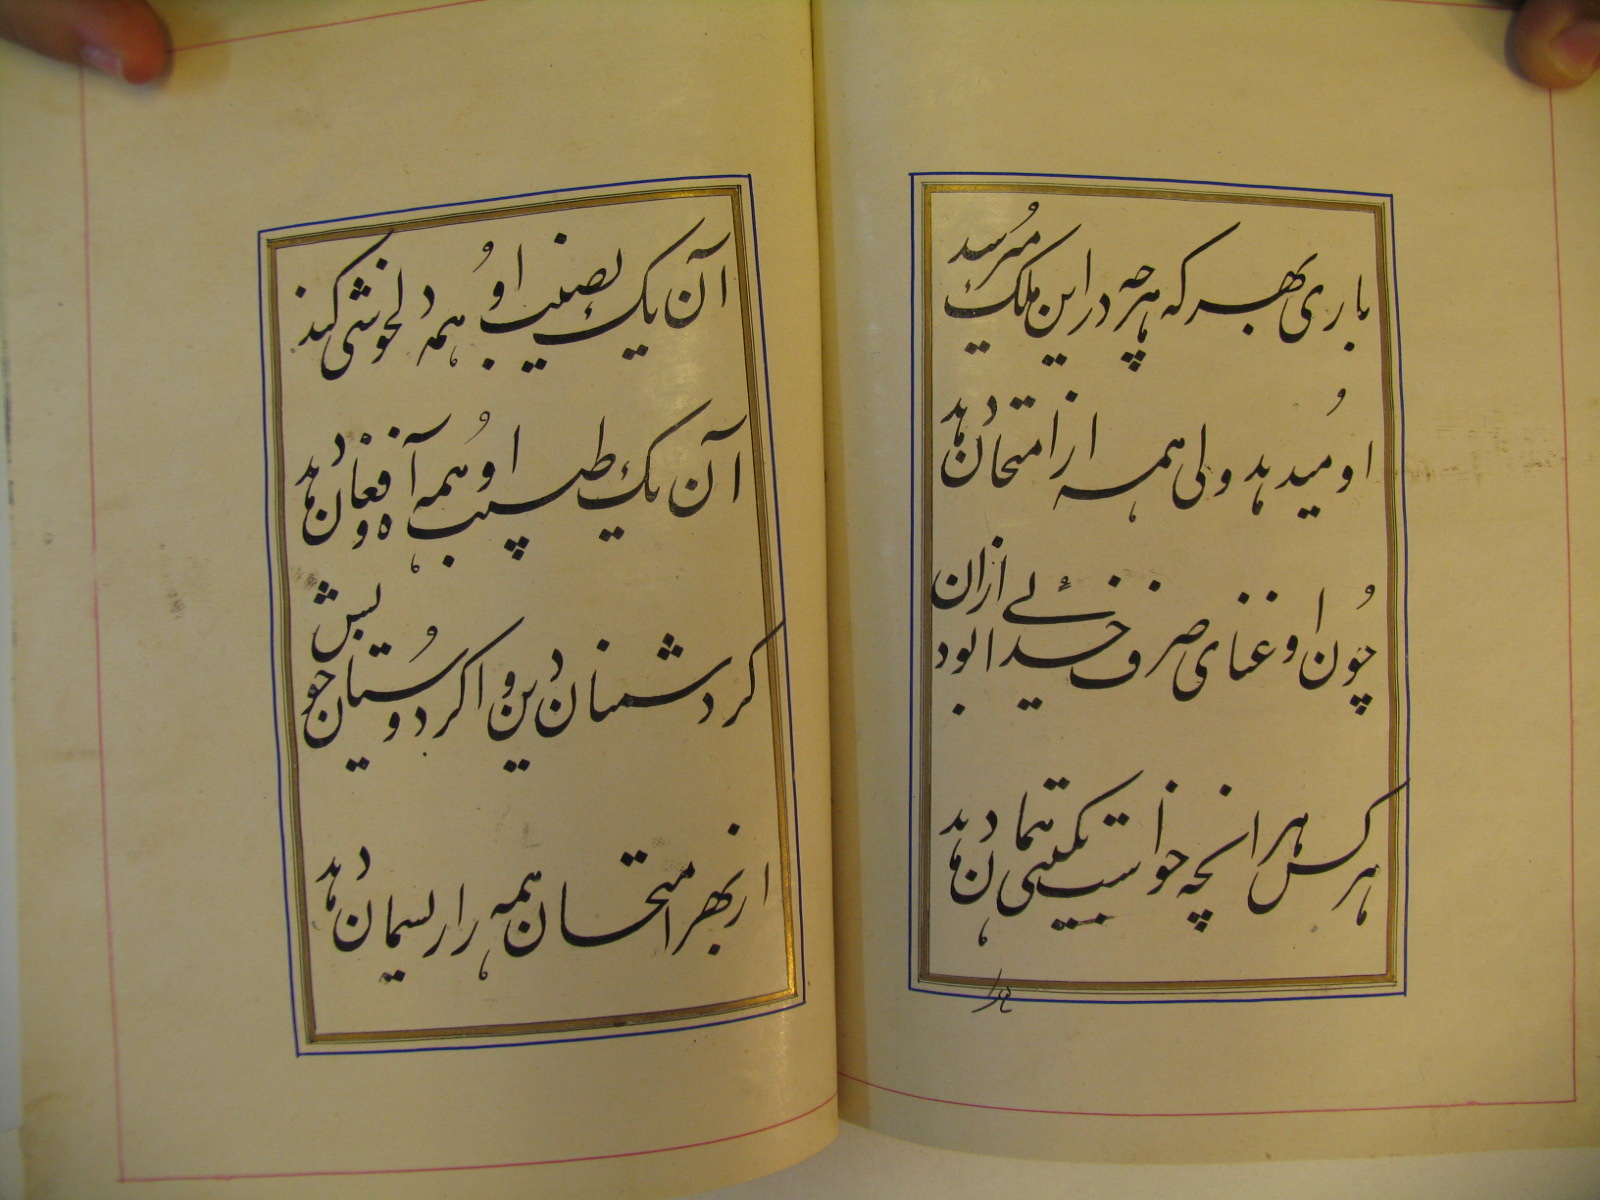 باری بهر که هر چه در این ملک میرسد
او میدهد ولی همه از امتحان دهد
چون او غنای صرف خدائی از آن بود
هر کس هر آنچه خواست بگیتی همان دهد
آن یک نصیب او همه دلخوشی کند
آن یک طبیب او همه آه و فغان دهد
گر دشمنان دین و اگر دوستیان حق
از بهر امتحان همه را ریسمان دهد